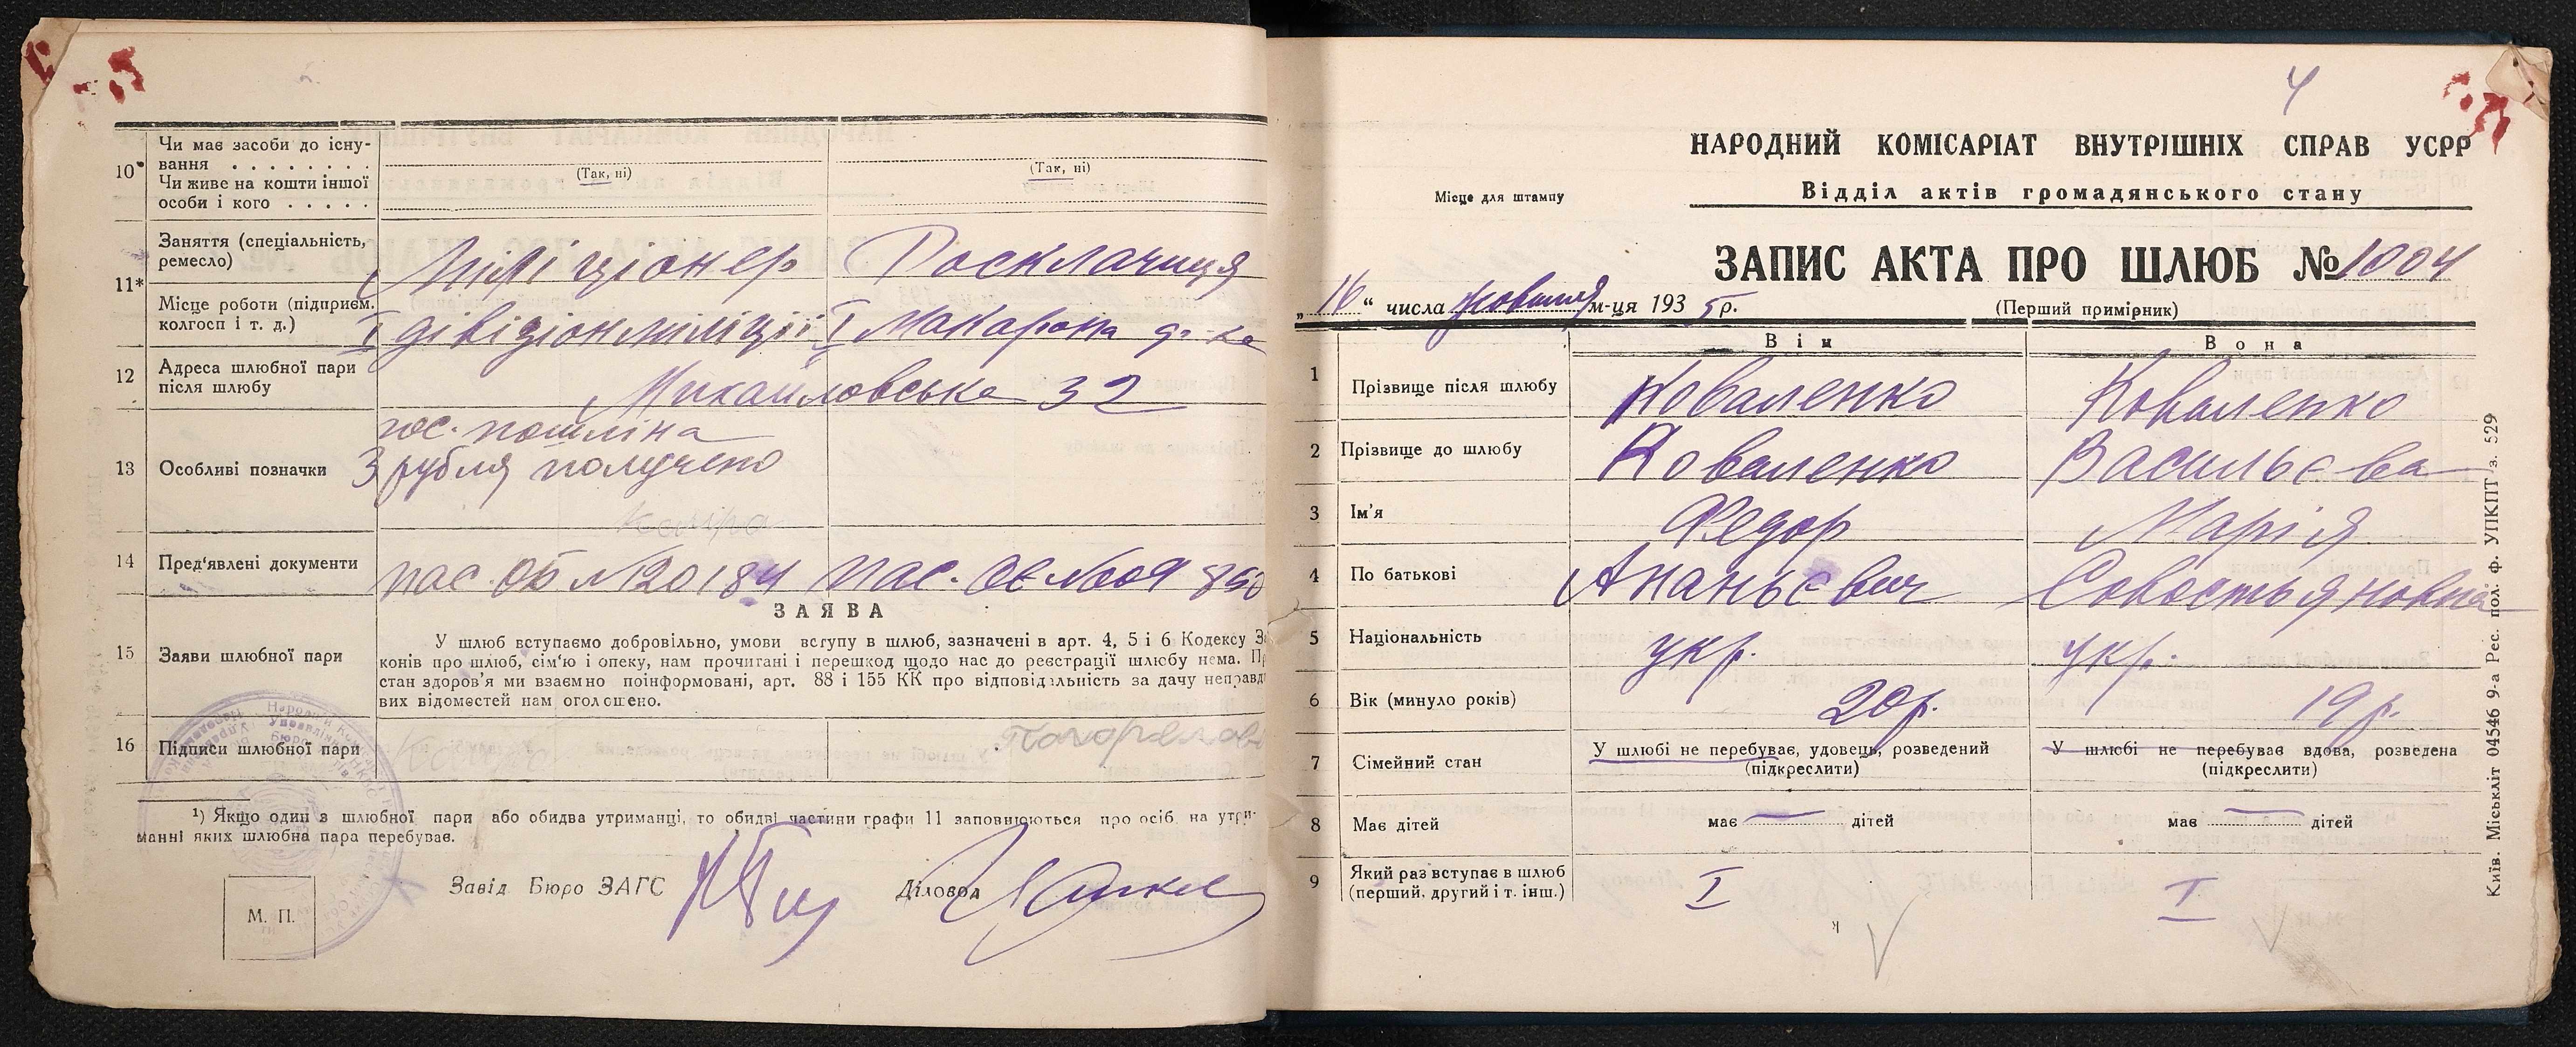 10*
Чи має засоби до існу-
вання . . . . . . . .
Чи живе на кошти іншої
особи і кого . . . . .
(Так, ні)
(Так, ні)
11*
Заняття (спеціальність,
ремесло)
Міліціонер
Росклачиця
Місце роботи (підприєм.
колгосп і т. д.)
I дівізіон міліції
I Макарона ф-ка
12
Адреса шлюбної пари
після шлюбу
Михайловська 32
13
Особливі позначки
гос. пошліна
3 рубля получено
14
Пред'явлені документи
пас. ОБ №20184
пас. ОЄ №609850
ЗАЯВА
15
Заяви шлюбної пари
У шлюб вступаємо добровільно, умови вступу в шлюб, зазначені в арт. 4, 5 і 6 Кодексу З
конів про шлюб, сім'ю і опеку, нам прочитані і перешкод щодо нас до реєстрації шлюбу нема. Пр
стан здоров'я ми взаємно поінформовані, арт. 88 і 155 КК про відповідальність за дачу неправд
вих відомостей нам оголошено.
16
Підписи шлюбної пари
¹) Якщо один з шлюбної пари або обидва утриманці, то обидві частини графи 11 заповнюються про осіб, на утри-
манні яких шлюбна пара перебуває.
Завід Бюро ЗАГС
Діловод
М. П.
4
НАРОДНИЙ КОМІСАРІАТ ВНУТРІШНІХ СПРАВ УСРР
Відділ актів громадянського стану
Місце для штампу
ЗАПИС АКТА ПРО ШЛЮБ № 1004
„16“ числа жовтня м-ця 1935 р.
(Перший примірник)
Він
Вона
1
Прізвище після шлюбу
Коваленко
Коваленко
2
Прізвище до шлюбу
Коваленко
Васильєва
3
Ім'я
Федор
Марія
4
По батькові
Ананьєвич
Совостьяновна
5
Національність
укр.
укр.
6
Вік (минуло років)
20 р.
19 р.
7
Сімейний стан
У шлюбі не перебуває, удовець, розведений
(підкреслити)
У шлюбі не перебуває вдова, розведена
(підкреслити)
8
Має дітей
має — дітей
має — дітей
9
Який раз вступає в шлюб
(перший, другий і т. інш.)
I
I
Київ. Міськліт 04546 9-а Рес. пол. ф. УПКПТ з. 529